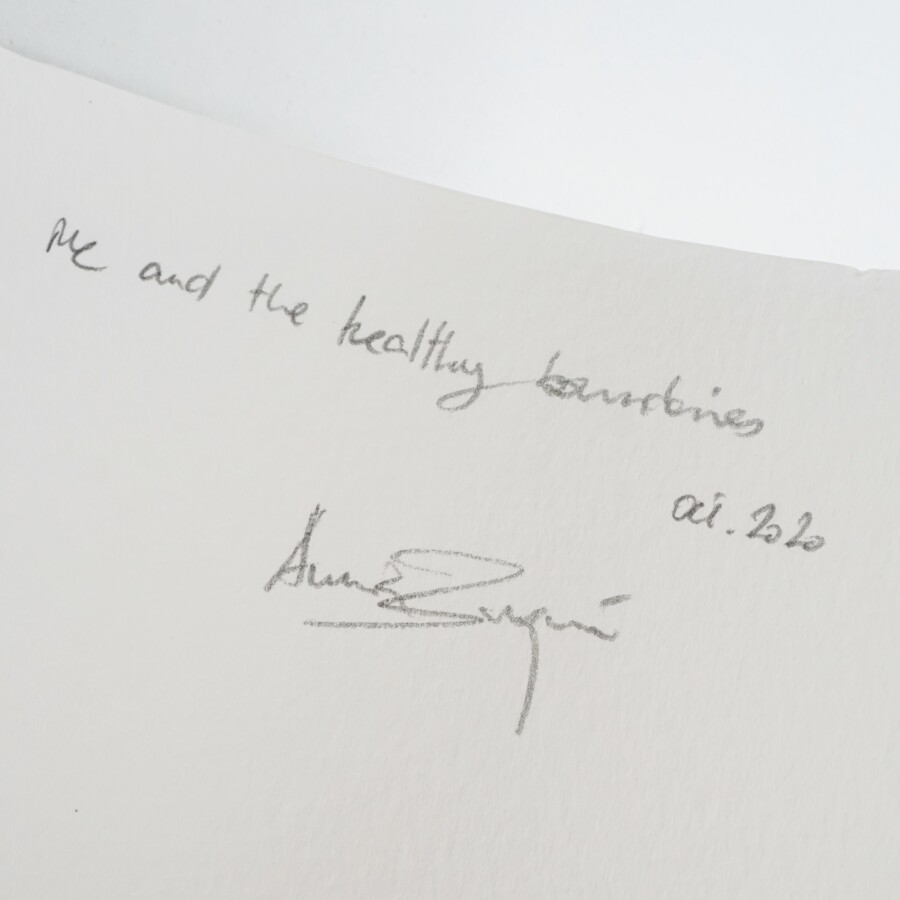 Me and the healthy boundries
oct. 2020
Anna